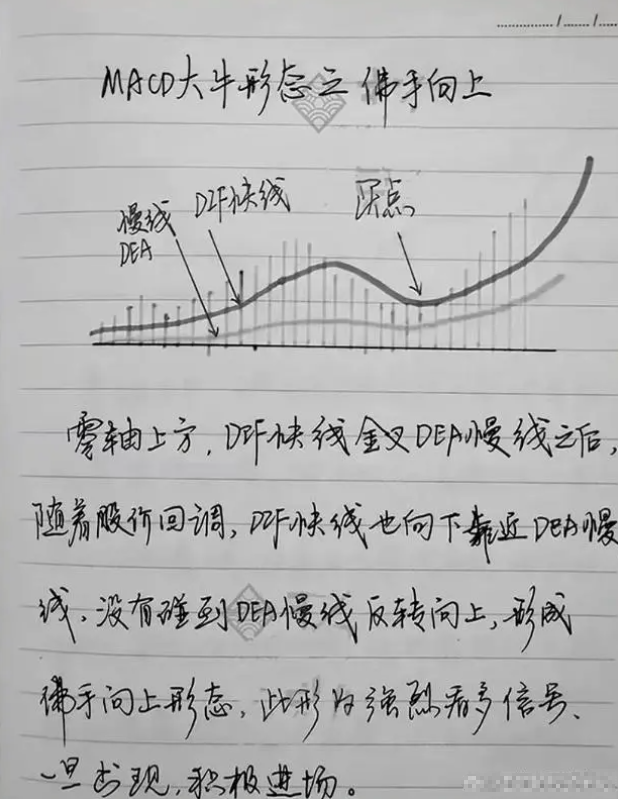 MACD大牛形态之佛手向上
慢线 DIF快线 买点
DEA
零轴上方，DIF快线金叉DEA慢线之后，
随着股价回调，DIF快线也向下靠近DEA慢
线，没有碰到DEA慢线反转向上，形成
佛手向上形态，此形为强烈看多信号、
一旦出现，积极进场。